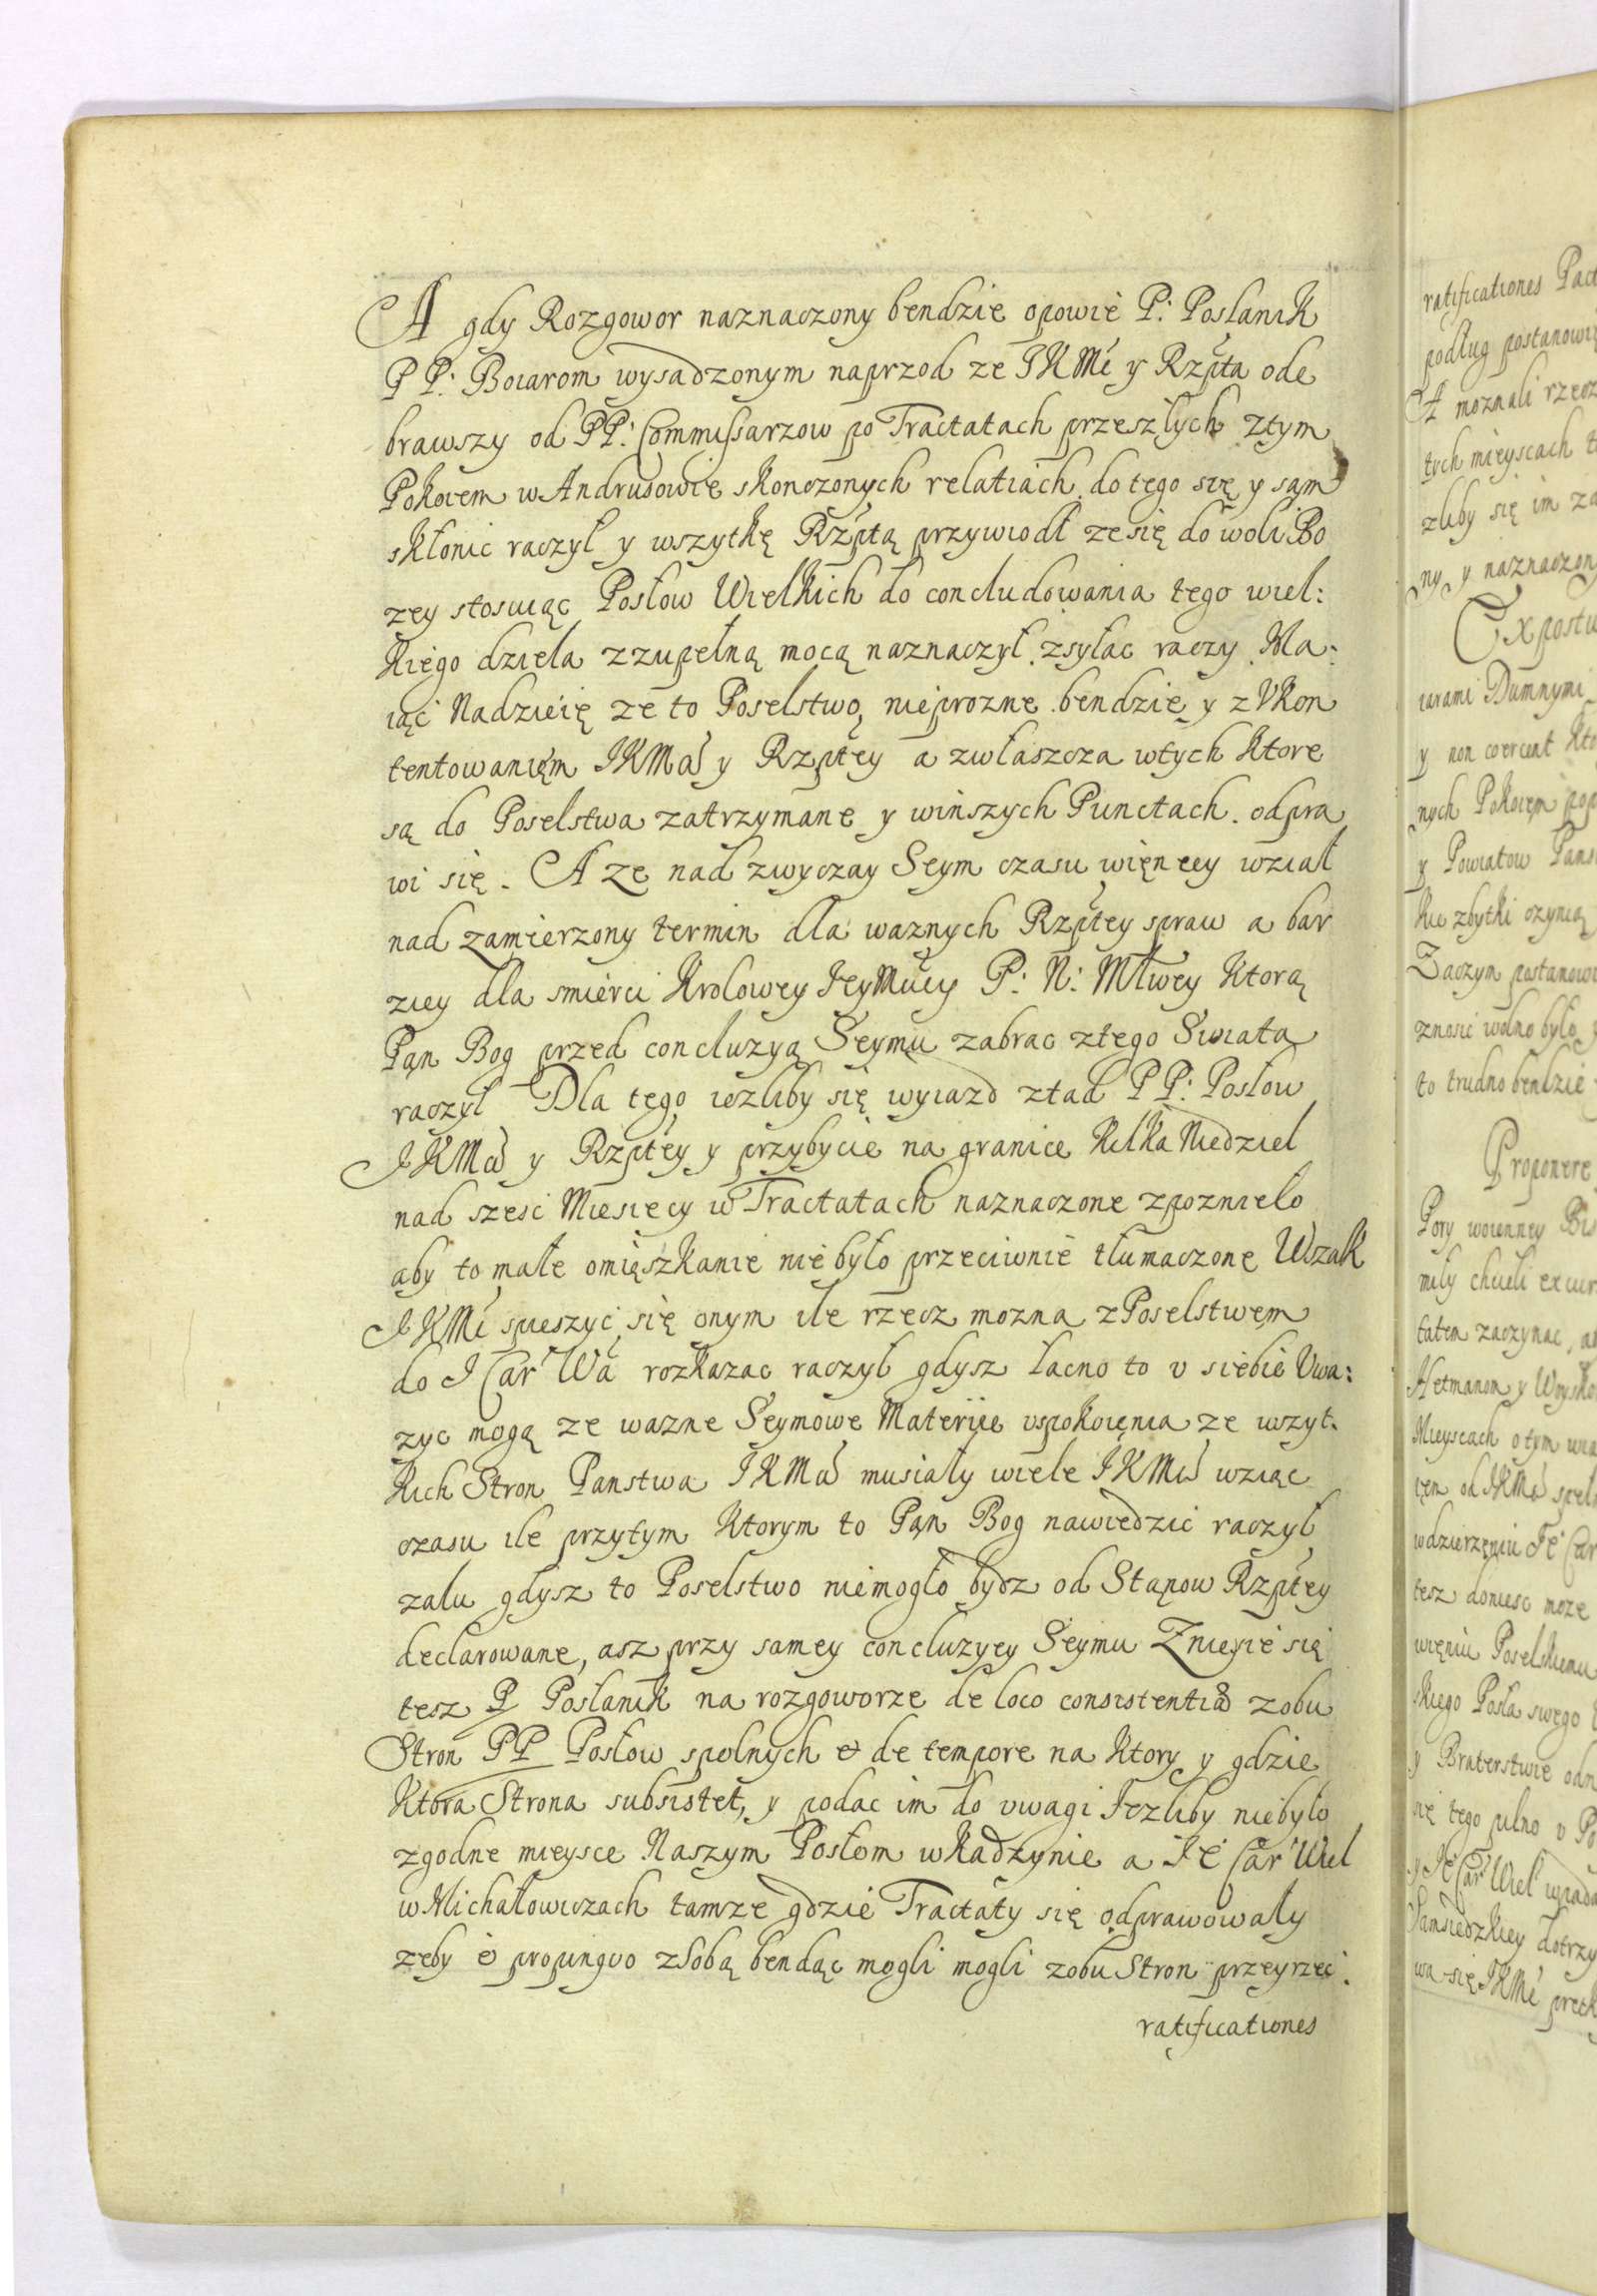 A gdy Rozgowor naznaczony bendzie opowie P: Poslanik
P P: Boiarom wysadzonym naprzod ze JKMć y Rzpta ode
brawszy od PP: Commissarzow po Tractatach przeszłych ztym
Pokoiem w Andrusowie skonczonych relatiach do tego się y sąm
skłonic raczył y wszytkę Rzptą przywiodł ze się do woli Bo
zey stosuiąc Posłow Wielkich do concludowania tego wiel:
kiego dzieła z zupełną mocą naznaczył. zsyłac raczy. Ma:
iąc Nadzieię ze to Poselstwo nieprozne bendzie y z Vkon
tentowanięm JKMći y Rzptey a zwłaszcza wtych ktore
są do Poselstwa zatrzymane y winszych Punctach. odpra
wi się. A ze nad zwyczay Seym czasu więncey wział
nad zamierzony termin dla waznych Rzptey spraw a bar
ziey dla smierci Krolowey JeyMući P: N: Młwey Ktorą
Pąn Bog przed concluzyą Seymu zabrac ztego Swiata
raczył Dla tego iezliby się wyiazd ztad P P: Posłow
JKMći y Rzptey y przybycie na granice Kilka Niedziel
nad szesc Miesiecy w Tractatach naznaczone zpozniło
aby to małe omięszkanie nie było przeciwnie tłumaczone Wszak
JKMć spieszyc się onym ile rzecz mozna z Poselstwem
do J Car Wa rozkazac raczył gdysz łacno to v siebie Vwa:
zyc mogą ze wazne Seymowe Materije vspokoięnia ze wszyt.
kich Stron Panstwa JKMći musiały wiele JKMći wziąc
czasu ile przytym Ktorym to Pąn Bog nawiedzic raczył
zalu gdysz to Poselstwo niemogło bydz od Stąnow Rzptey
declarowane, asz przy samey concluzyey Seymu Zniesie się
tesz P Posłanik na rozgoworze de loco consistentiæ zobu
Stron PP Posłow spolnych & de tempore na Ktory y gdzie
Ktora Strona subsistet, y podac im do vwagi Jezliby niebyło
zgodne mieysce Naszym Posłom w Kadzynie a Jé Car Wiel
w Michałowiczach tamze gdzie Tractaty się odprawowały
zeby e propinquo z Sobą bendąc mogli mogli zobu Stron przeyrzec.
ratificationes
ratificationes Pact
podług postanowie
A moznali rzecz
tych mieyscach t
zliby się im za
ny y naznaczon
Expostu
iarami Dumnymi
y non coercent Kto
nych Pokoiem pop
y Powiatow Pans
kie zbytki czynią
Zaczym postanowi
znosic wolno było
to trudno bendzie
Proponere
Pory woienney Bis
mily chcieli excur
tatem zaczynac, a
Hetmanom y Woysko
Mieyscach o tym wia
ięm od JKMći speł
wdzierzęniu Jé Car
tesz doniesc moze
więniu Poselskiemu
skiego Posła swego
y Braterstwie odn
się tego pilno v Po
y Jé Car Wiel
Samsiedzkiey dotrzy
wa się JKMć pretk